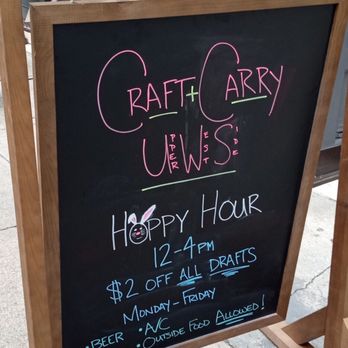 CRAFT + CARRY
UPPER WEST SIDE
HOPPY HOUR
12-4PM
$2 OFF ALL DRAFTS
MONDAY-FRIDAY
• BEER • A/C
• OUTSIDE FOOD ALLOWED!